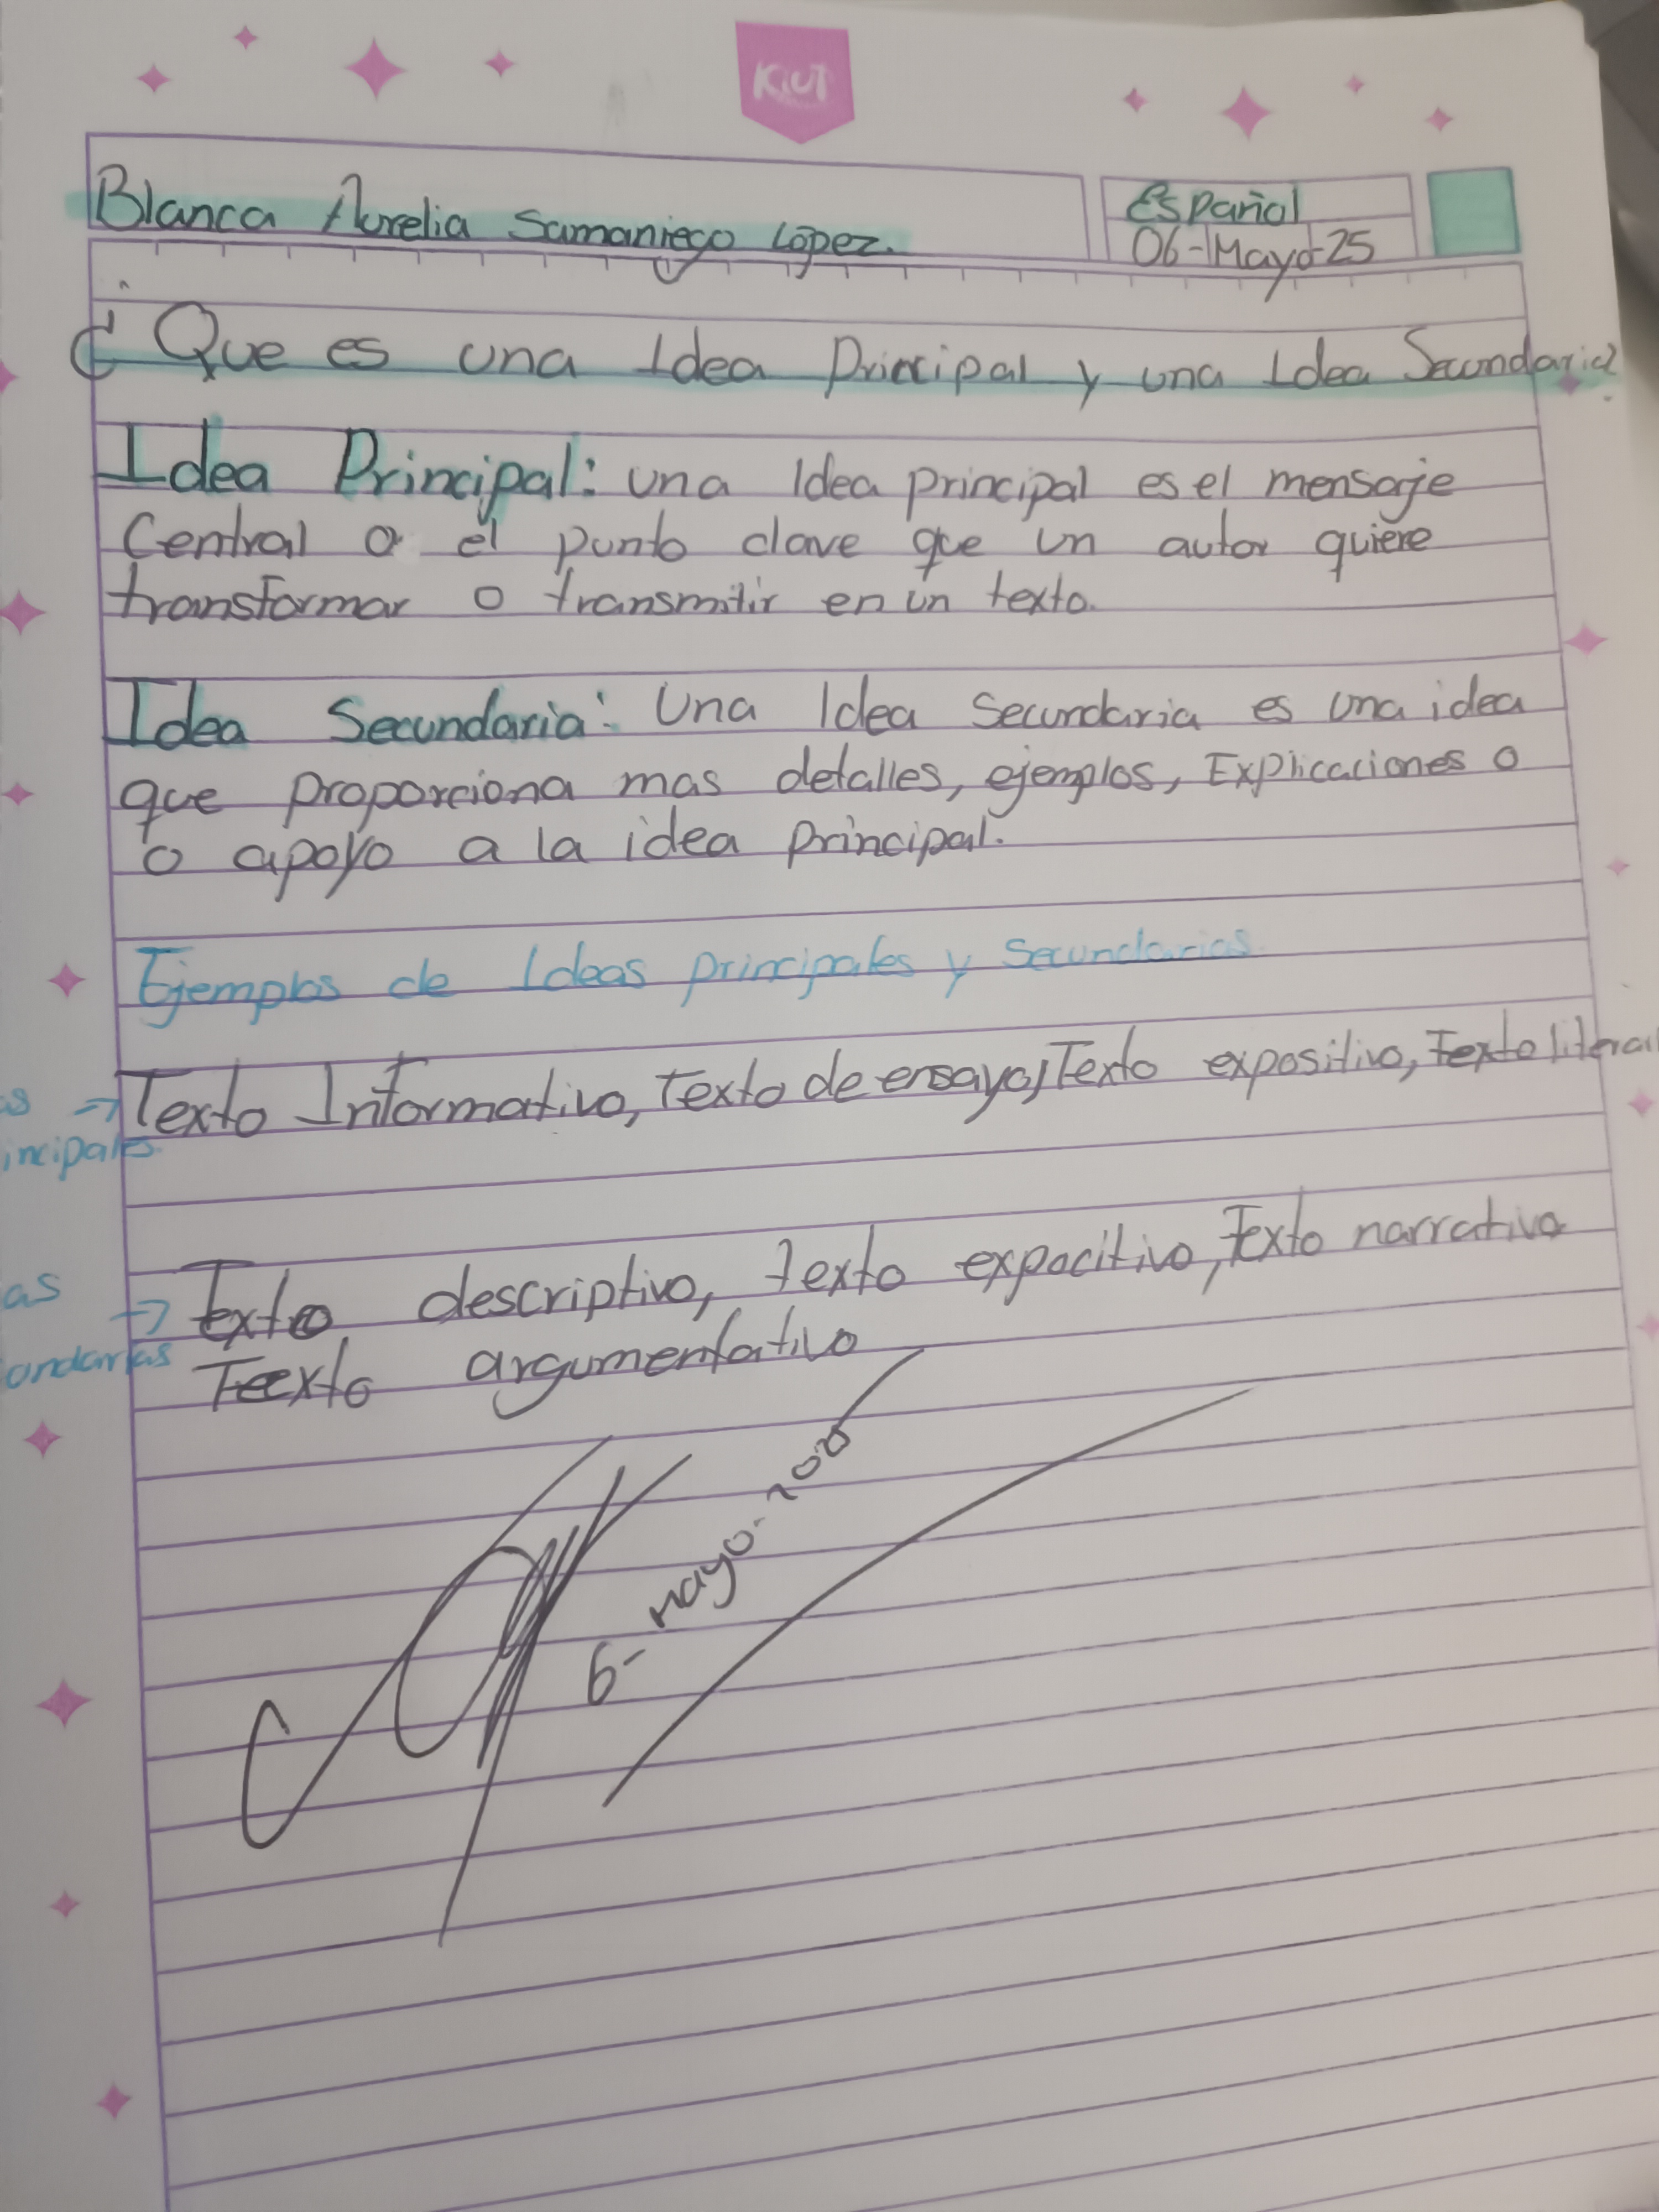 KIUT
Blanca Aurelia Samaniego López.
Español
06-Mayo-25
¿Que es una Idea Principal y una Idea Secundaria?
Idea Principal: una Idea principal es el mensaje
Central o el punto clave que un autor quiere
transformar o transmitir en un texto.
Idea Secundaria: Una Idea secundaria es una idea
que proporciona mas detalles, ejemplos, Explicaciones o
o apoyo a la idea principal.
Ejemplos de Ideas principales y Secundarias
as → Texto Informativo, Texto de ensayo, Texto expositivo, Texto literal
incipales
as → Texto descriptivo, texto expocitivo, Texto narrativo
undarias Teexto argumentativo
6- mayo-